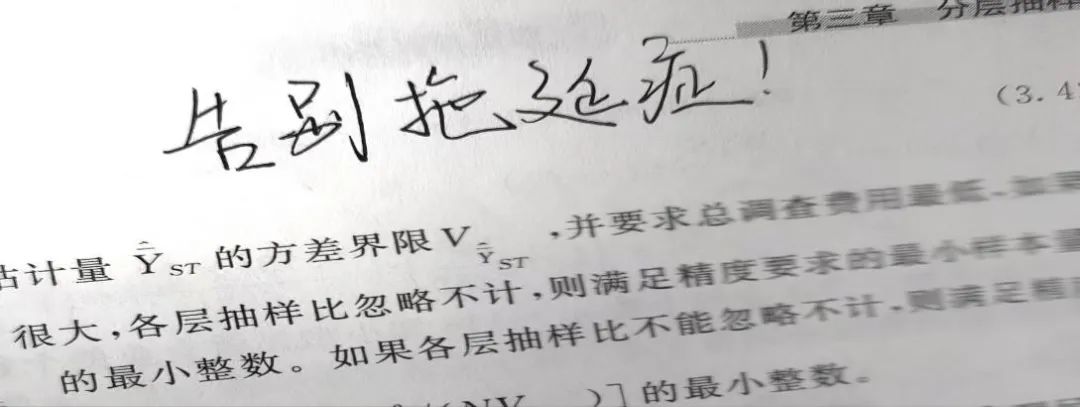 第三章 分层抽样
告别拖延症!
(3.4
估计量 Ȳ̄ST 的方差界限 VȲ̄ST ,并要求总调查费用最低、如果
很大,各层抽样比忽略不计,则满足精度要求的最小样本量
的最小整数。如果各层抽样比不能忽略不计,则满足精
)] 的最小整数。